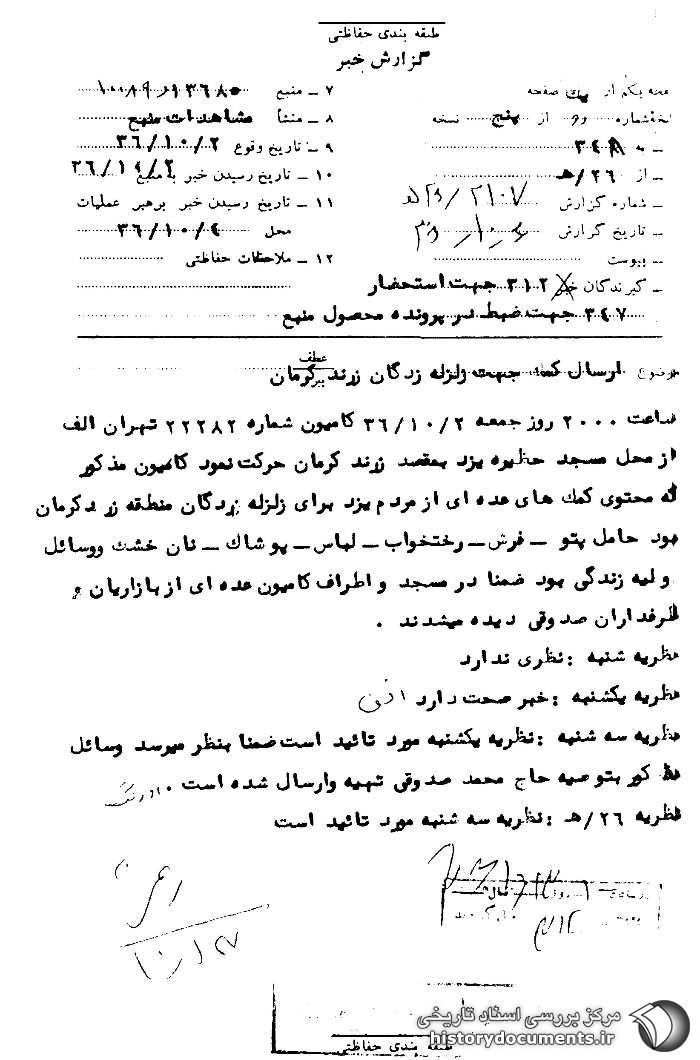 طبقه بندی حفاظتی
گزارش خبر
صفحه یکم از یک صفحه
نسخه شماره دو از پنج نسخه
ـ به ۳۴۸
ـ از ۲۶/هـ
ـ شماره گزارش
ـ تاریخ گزارش
ـ پیوست
ـ گیرندگان خبر ۳۱۲ جهت استحضار
۳۴۷ جهت ضبط در پرونده محصول منبع
۷ ـ منبع
۸ ـ منشأ مشاهدات منبع
۹ ـ تاریخ وقوع ۳۶/۱۰/۲
۱۰ ـ تاریخ رسیدن خبر به منبع
۱۱ ـ تاریخ رسیدن خبر برهبر عملیات
محل ۳۶/۱۰/۴
۱۲ ـ ملاحظات حفاظتی
موضوع ارسال کمک جهت زلزله زدگان زرند کرمان
عطف
ساعت ۲۰۰۰ روز جمعه ۳۶/۱۰/۲ کامیون شماره ۲۲۲۸۲ تهران الف
از محل مسجد حظیره یزد بمقصد زرند کرمان حرکت نمود کامیون مذکور
که محتوی کمک های عده ای از مردم یزد برای زلزله زدگان منطقه زرند کرمان
بود حامل پتو ـ فرش ـ رختخواب ـ لباس ـ پوشاک ـ نان خشک و وسائل
اولیه زندگی بود ضمنا در مسجد و اطراف کامیون عده ای از بازاریان و
طرفداران صدوقی دیده میشدند .
نظریه شنبه : نظری ندارد
نظریه یکشنبه : خبر صحت دارد
نظریه سه شنبه : نظریه یکشنبه مورد تائید است ضمنا بنظر میرسد وسائل
مذکور بتوصیه حاج محمد صدوقی تهیه وارسال شده است .
نظریه ۲۶/هـ : نظریه سه شنبه مورد تائید است
طبقه بندی حفاظتی
مرکز بررسی اسناد تاریخی
historydocuments.ir